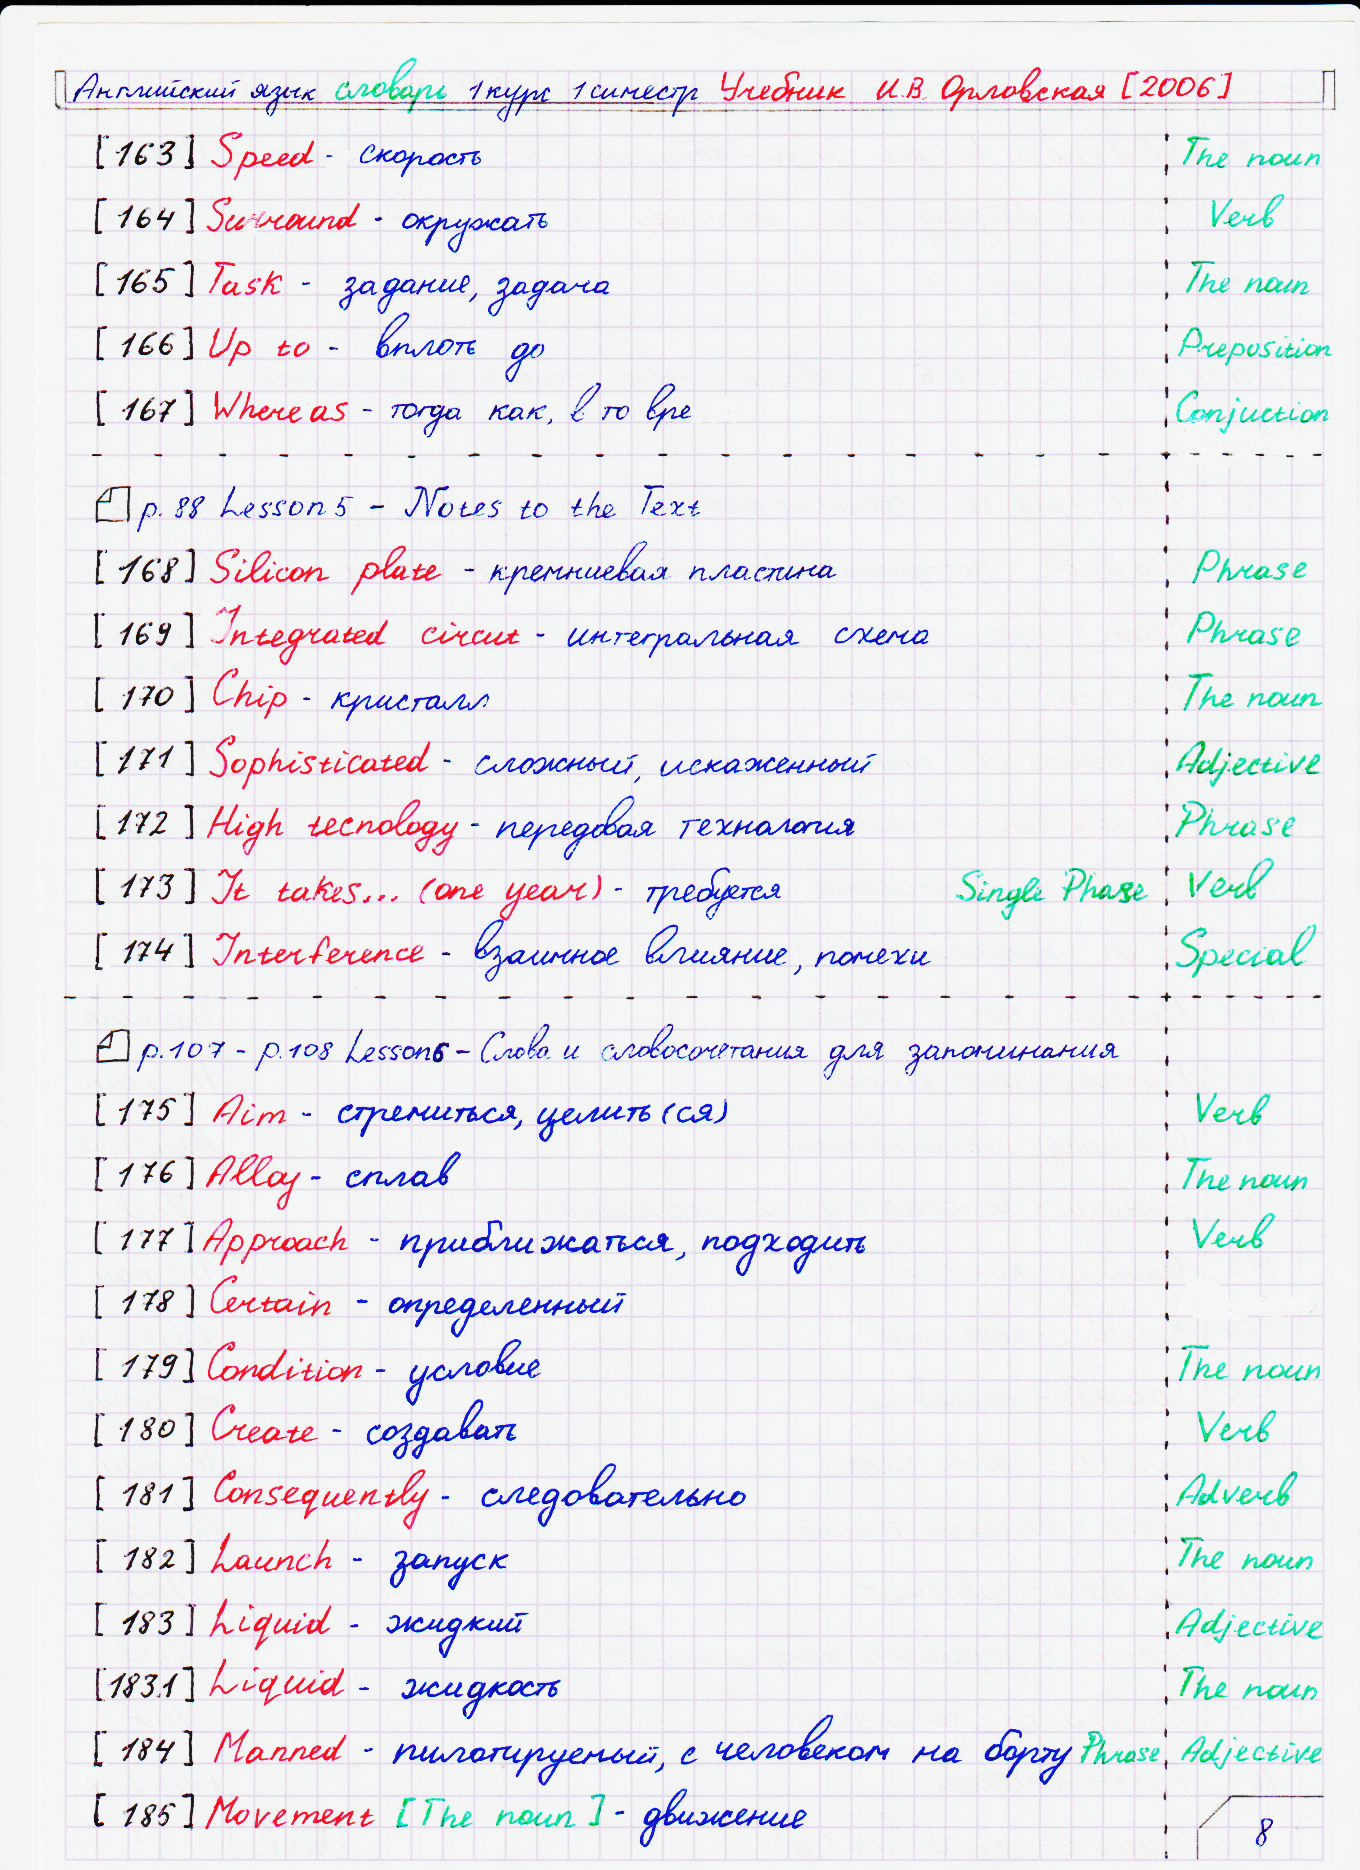 Английский язык словарь 1 курс 1 симестр Учебник И.В. Орловская [2006]
[163] Speed - скорость The noun
[164] Surround - окружать Verb
[165] Task - задание, задача The noun
[166] Up to - вплоть до Preposition
[167] Whereas - тогда как, в то вре Conjuction
p. 88 Lesson 5 - Notes to the Text
[168] Silicon plate - кремниевая пластина Phrase
[169] Integrated circut - интегральная схема Phrase
[170] Chip - кристалл The noun
[171] Sophisticated - сложный, искаженный Adjective
[172] High tecnology - передовая технология Phrase
[173] It takes... (one year) - требуется Single Phase Verb
[174] Interference - взаимное влияние, помехи Special
p.107 - p.108 Lesson 6 - Слова и словосочетания для запоминания
[175] Aim - стремиться, целить(ся) Verb
[176] Alloy - сплав The noun
[177] Approach - приближаться, подходить Verb
[178] Certain - определенный
[179] Condition - условие The noun
[180] Create - создавать Verb
[181] Consequently - следовательно Adverb
[182] Launch - запуск The noun
[183] Liquid - жидкий Adjective
[183.1] Liquid - жидкость The noun
[184] Manned - пилотируемый, с человеком на борту Phrase Adjective
[185] Movement [The noun] - движение
8